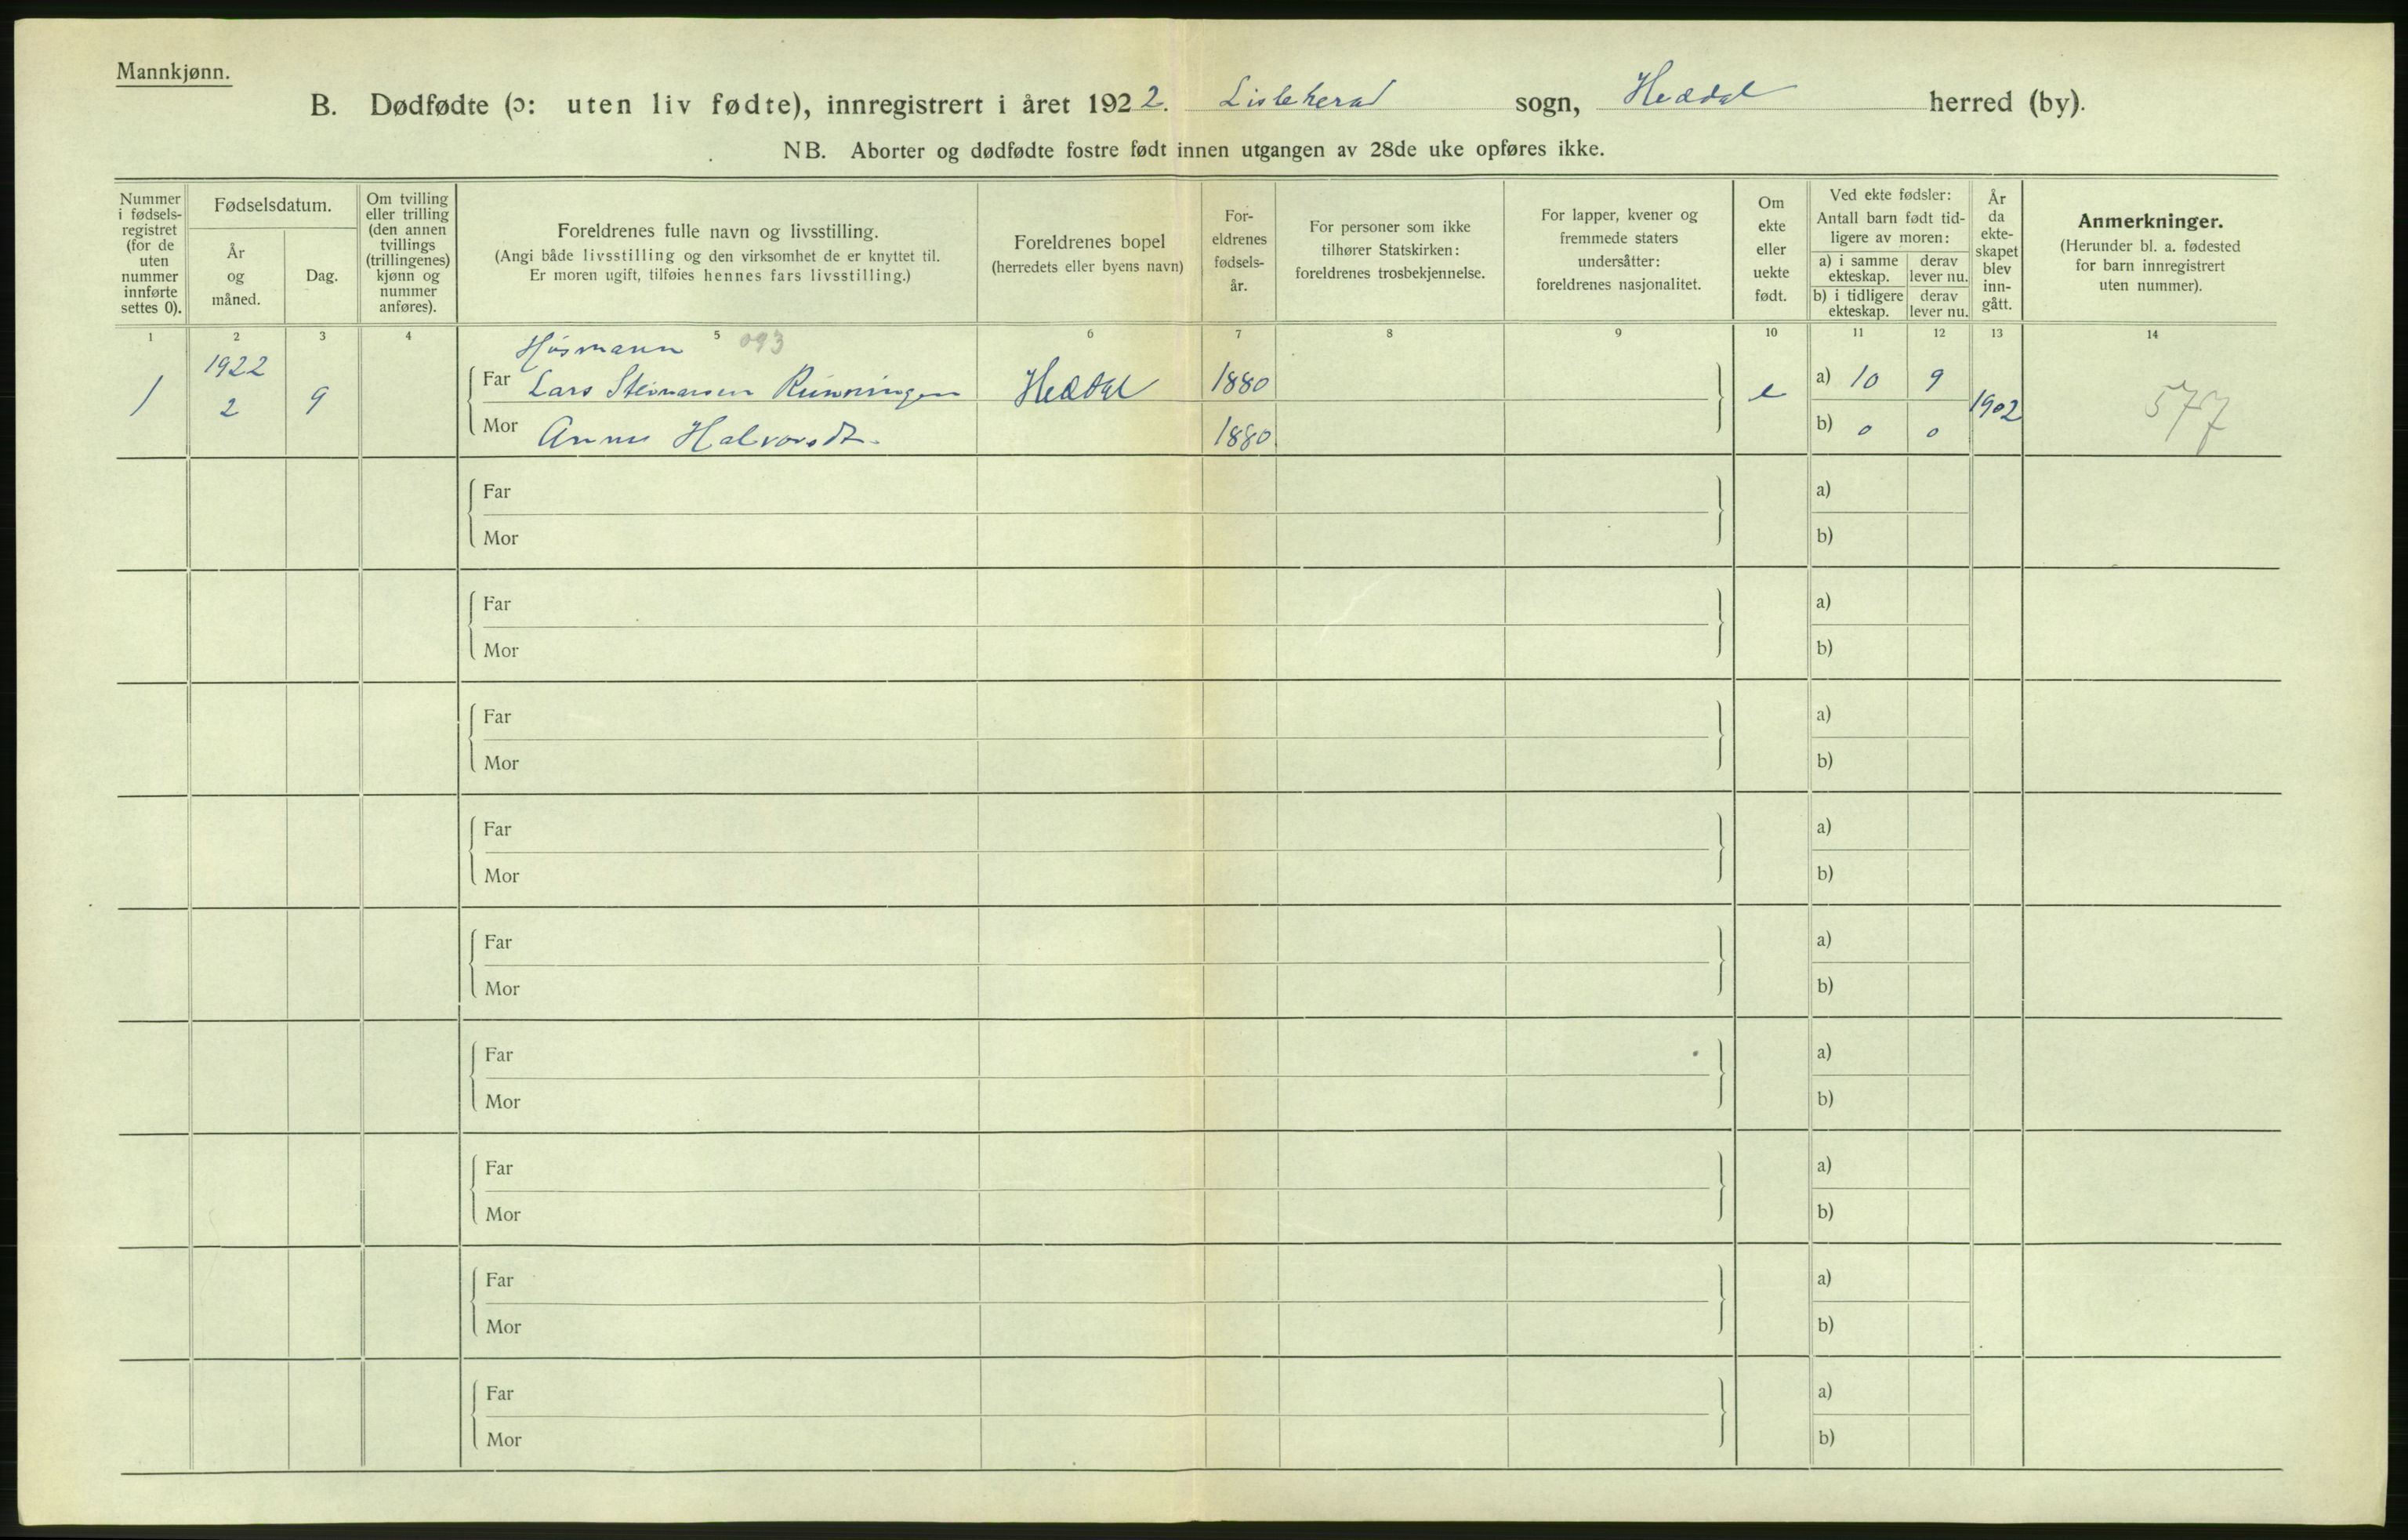 Mannkjønn.
B. Dødfødte (ɔ: uten liv fødte), innregistrert i året 1922. Lisleherad sogn, Heddal herred (by).
NB. Aborter og dødfødte fostre født innen utgangen av 28de uke opføres ikke.
Nummer i fødsels-registret (for de uten nummer innførte settes 0).
Fødselsdatum.
År og måned.
Dag.
Om tvilling eller trilling (den annen tvillings (trillingenes) kjønn og nummer anføres).
Foreldrenes fulle navn og livsstilling.
(Angi både livsstilling og den virksomhet de er knyttet til.
Er moren ugift, tilføies hennes fars livsstilling.)
Foreldrenes bopel
(herredets eller byens navn)
For-eldrenes fødsels-år.
For personer som ikke tilhører Statskirken: foreldrenes trosbekjennelse.
For lapper, kvener og fremmede staters undersåtter: foreldrenes nasjonalitet.
Om ekte eller uekte født.
Ved ekte fødsler:
Antall barn født tid-ligere av moren:
a) i samme ekteskap.
derav lever nu.
b) i tidligere ekteskap.
derav lever nu.
År da ekte-skapet blev inn-gått.
Anmerkninger.
(Herunder bl. a. fødested for barn innregistrert uten nummer).
1 2 3 4 5 6 7 8 9 10 11 12 13 14
Husmann 093
1922
1 2 9 Far Lars Steinarsen Runningen Heddal 1880 e a) 10 9 1902 577
Mor Anne Halvorsdt. 1880 b) 0 0
Far a)
Mor b)
Far a)
Mor b)
Far a)
Mor b)
Far a)
Mor b)
Far a)
Mor b)
Far a)
Mor b)
Far a)
Mor b)
Far a)
Mor b)
Far a)
Mor b)